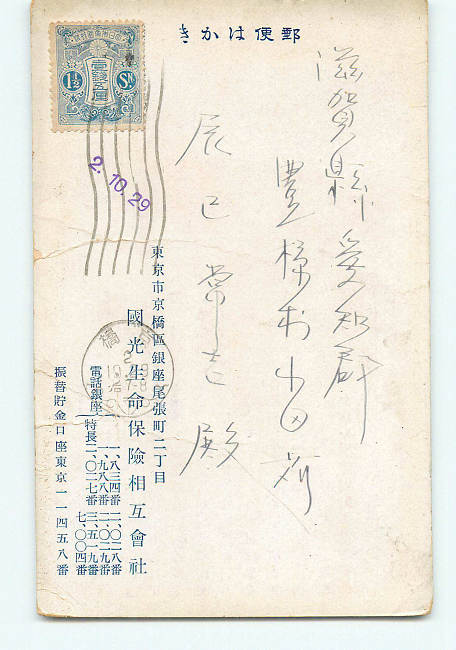 郵便はかき
大日本帝國郵便
壹銭五厘
1½ Sn
2.10.29
滋賀縣愛知郡
豊椋村小田苅
辰巳常吉殿
橋
東京市京橋區銀座尾張町二丁目
國光生命保險相互會社
電話銀座
特長
一、八三四番
一、九八八番
二、〇二七番
二、〇二八番
二、〇二九番
三、五一九番
七、〇〇四番
振替貯金口座東京一一四五八番